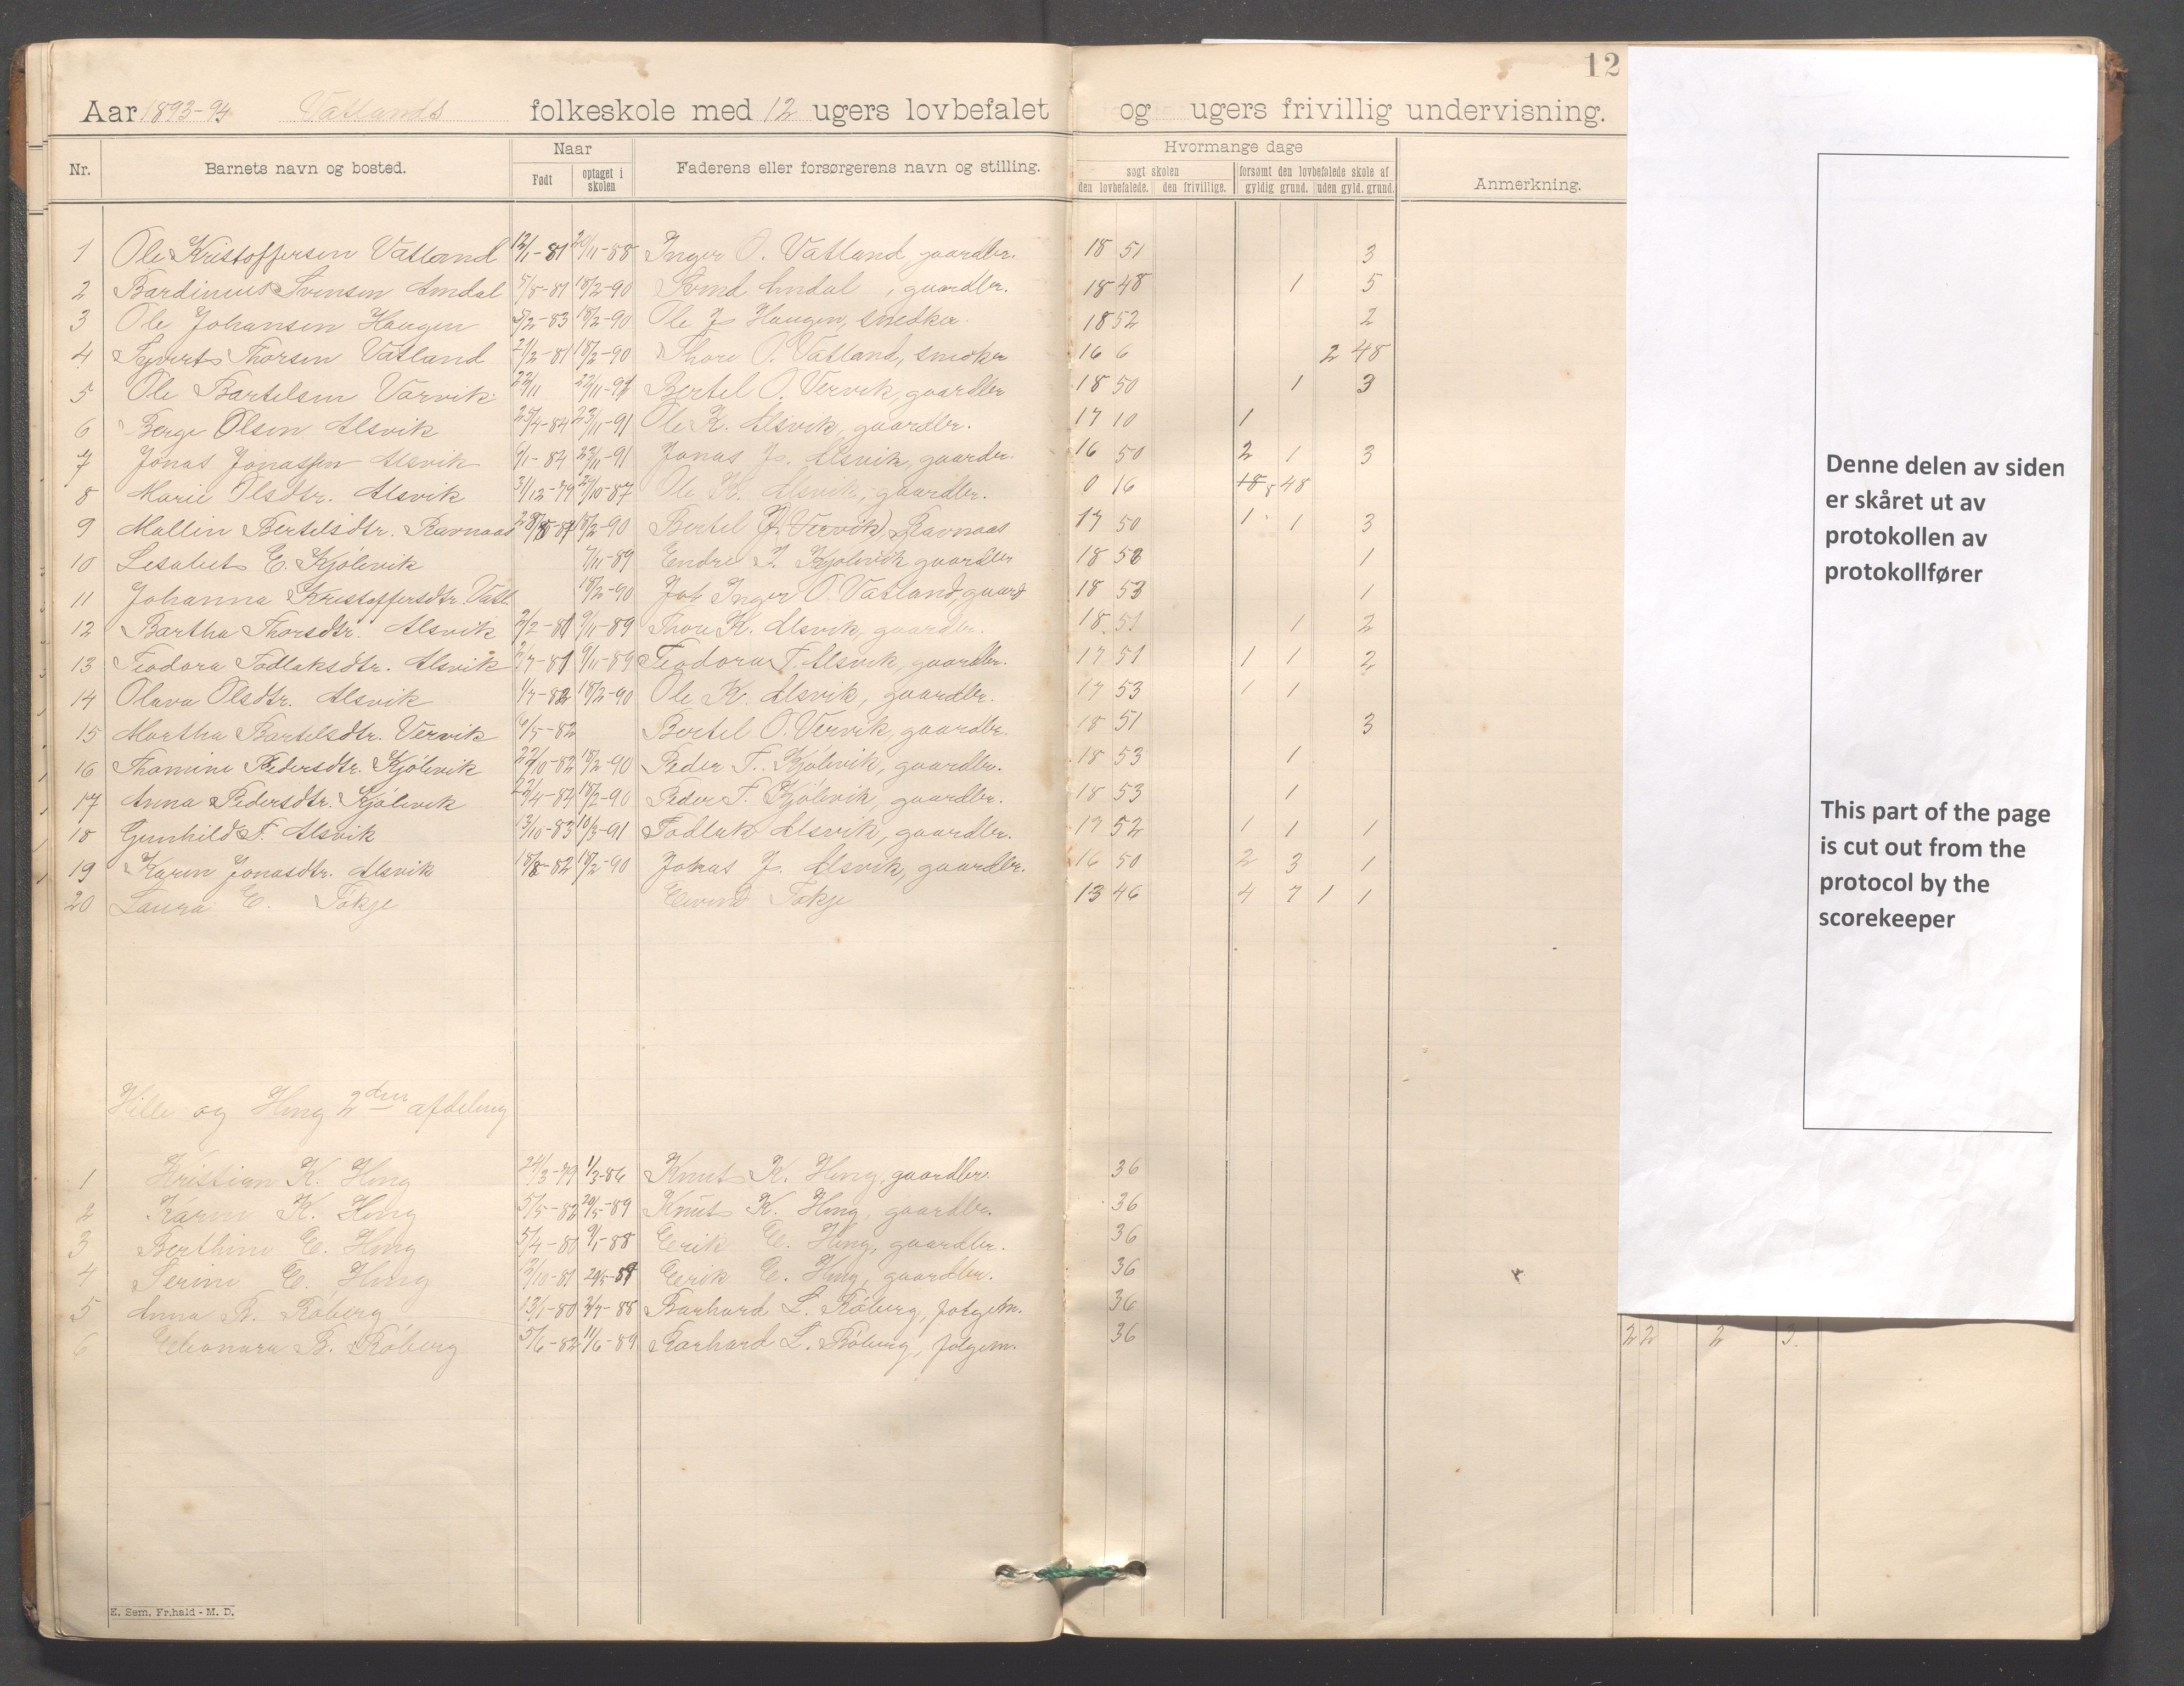 12
Aar 1893-94 Vatlands folkeskole med 12 ugers lovbefalet og ugers frivillig undervisning.
Nr. Barnets navn og bosted. Naar Født optaget i skolen Faderens eller forsørgerens navn og stilling. Hvormange dage søgt skolen den lovbefalede. den frivillige. forsømt den lovbefalede skole af gyldig grund. uden gyld. grund. Anmerkning.
1 Ole Kristoffersen Vatland 12/1-81 20/11-88 Inger O. Vatland, gaardbr. 18 51 3
2 Bardinius Svensen Amdal 5/8-81 18/2-90 Amdal, gaardbr. 18 48 1 5
3 Ole Johansen Haugen 5/2-83 18/2-90 Ole J. Haugen, snedker. 18 52 2
4 Sjvert Thorsen Vatland 18/2-90 Thore O. Vatland, 16 6 2 48
5 Ole Bartelsen Varvik 22/11 Bertel O. Vervik, gaardbr 18 50 1 3
6 Berge Olsen Alsvik 25/4-84 23/11-91 Ole K. Alsvik, gaardbr. 17 10 1
7 Jonas Jonassen Alsvik 23/11-91 Jonas J. Alsvik, gaardbr. 16 50 2 1 3
8 Marie Olsdtr. Alsvik 31/12-79 Ole K. Alsvik, gaardbr. 0 16 18 8 48
9 Mallin Bertelsdtr. Ravnaas 18/2-90 Bertel (J. Vervik) Ravnaas 17 50 1 1 3
10 Lesabet E. Kjölevik 7/11-89 Endre T. Kjölevik gaardbr 18 1
11 Johanna Kristoffersdtr. Vatl. 18/2-90 Inger O. Vatland, gaard 18 53 1
12 Bartha Thorsdtr. Alsvik 2/2-81 9/11-89 Thore K. Alsvik, gaardbr. 18 51 1 2
13 Teodora Todlaksdtr. Alsvik 2/7-81 9/11-89 Teodora T. Alsvik, gaardbr. 17 51 1 1 2
14 Olava Olsdtr. Alsvik 1/7-82 18/2-90 Ole K. Alsvik, gaardbr. 17 53 1 1
15 Martha Bartelsdtr. Vervik 6/5-82 Bertel O. Vervik, gaardbr. 18 51 3
16 Thomine Pedersdtr. Kjölevik 18/2-90 Peder T. Kjölevik, gaardbr. 18 53 1
17 Anna Pedersdtr. Kjölevik 18/2-90 Peder T. Kjölevik, gaardbr. 18 53 1
18 Gunhild T. Alsvik 13/10-83 10/3-91 Todlak Alsvik, gaardbr. 17 52 1 1 1
19 Karen Jonasdtr. Alsvik 18/8-82 18/2-90 Jonas J. Alsvik, gaardbr. 16 50 2 3 1
20 Laura E. Tökje Eivind Tökje 13 46 4 7 1 1
Hille og Hing 2den afdeling
1 Kristian K. Hing 24/3-79 1/3-86 Knut K. Hing, gaardbr. 36
2 Karen K. Hing 5/5-82 29/5-89 Knut K. Hing, gaardbr. 36
3 Berthine E. Hing 5/4-80 9/1-88 Eerik E. Hing, gaardbr. 36
4 Serine E. Hing Eerik E. Hing, gaardbr. 36
5 Anna B. Röberg 13/1-80 2/7-88 Barhard L. Röberg, 36
6 Eleonora B. Röberg 5/6-82 11/6-89 Barhard L. Röberg, 36
22 2 3.
E. Sem, Fr.hald - M. D.
Denne delen av siden
er skåret ut av
protokollen av
protokollfører
This part of the page
is cut out from the
protocol by the
scorekeeper